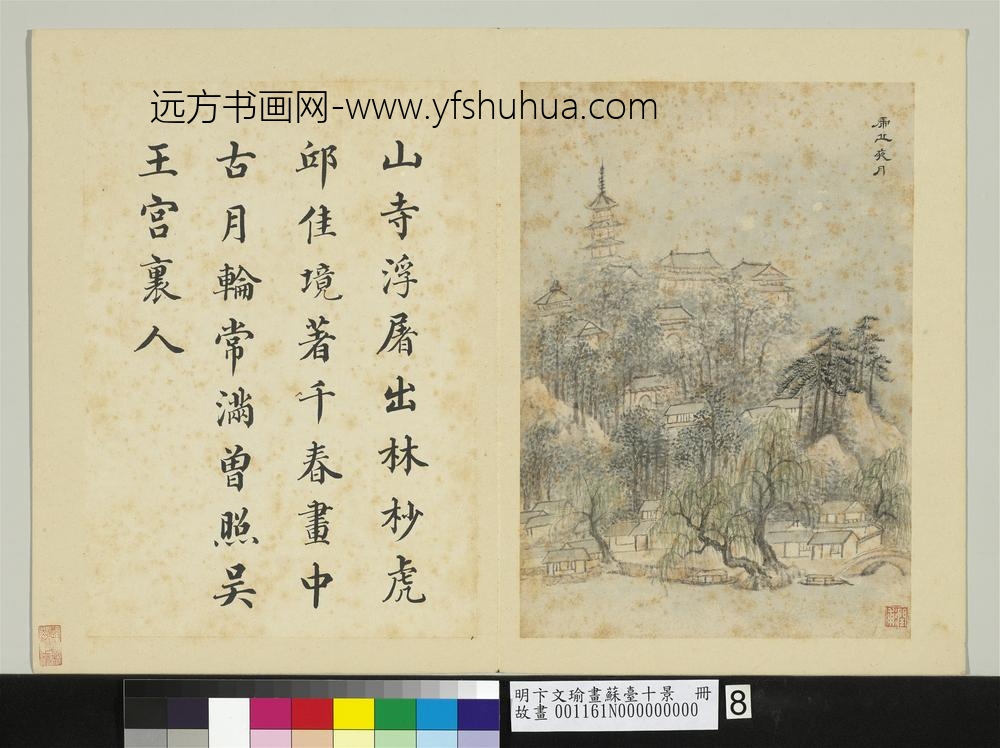 远方书画网-www.yfshuhua.com
虎丘夜月
山寺浮屠出林杪虎
邱佳境著千春畫中
古月輪常滿曾照吴
王宮裏人
明卞文瑜畫蘇臺十景 冊
故畫 001161N000000000
8